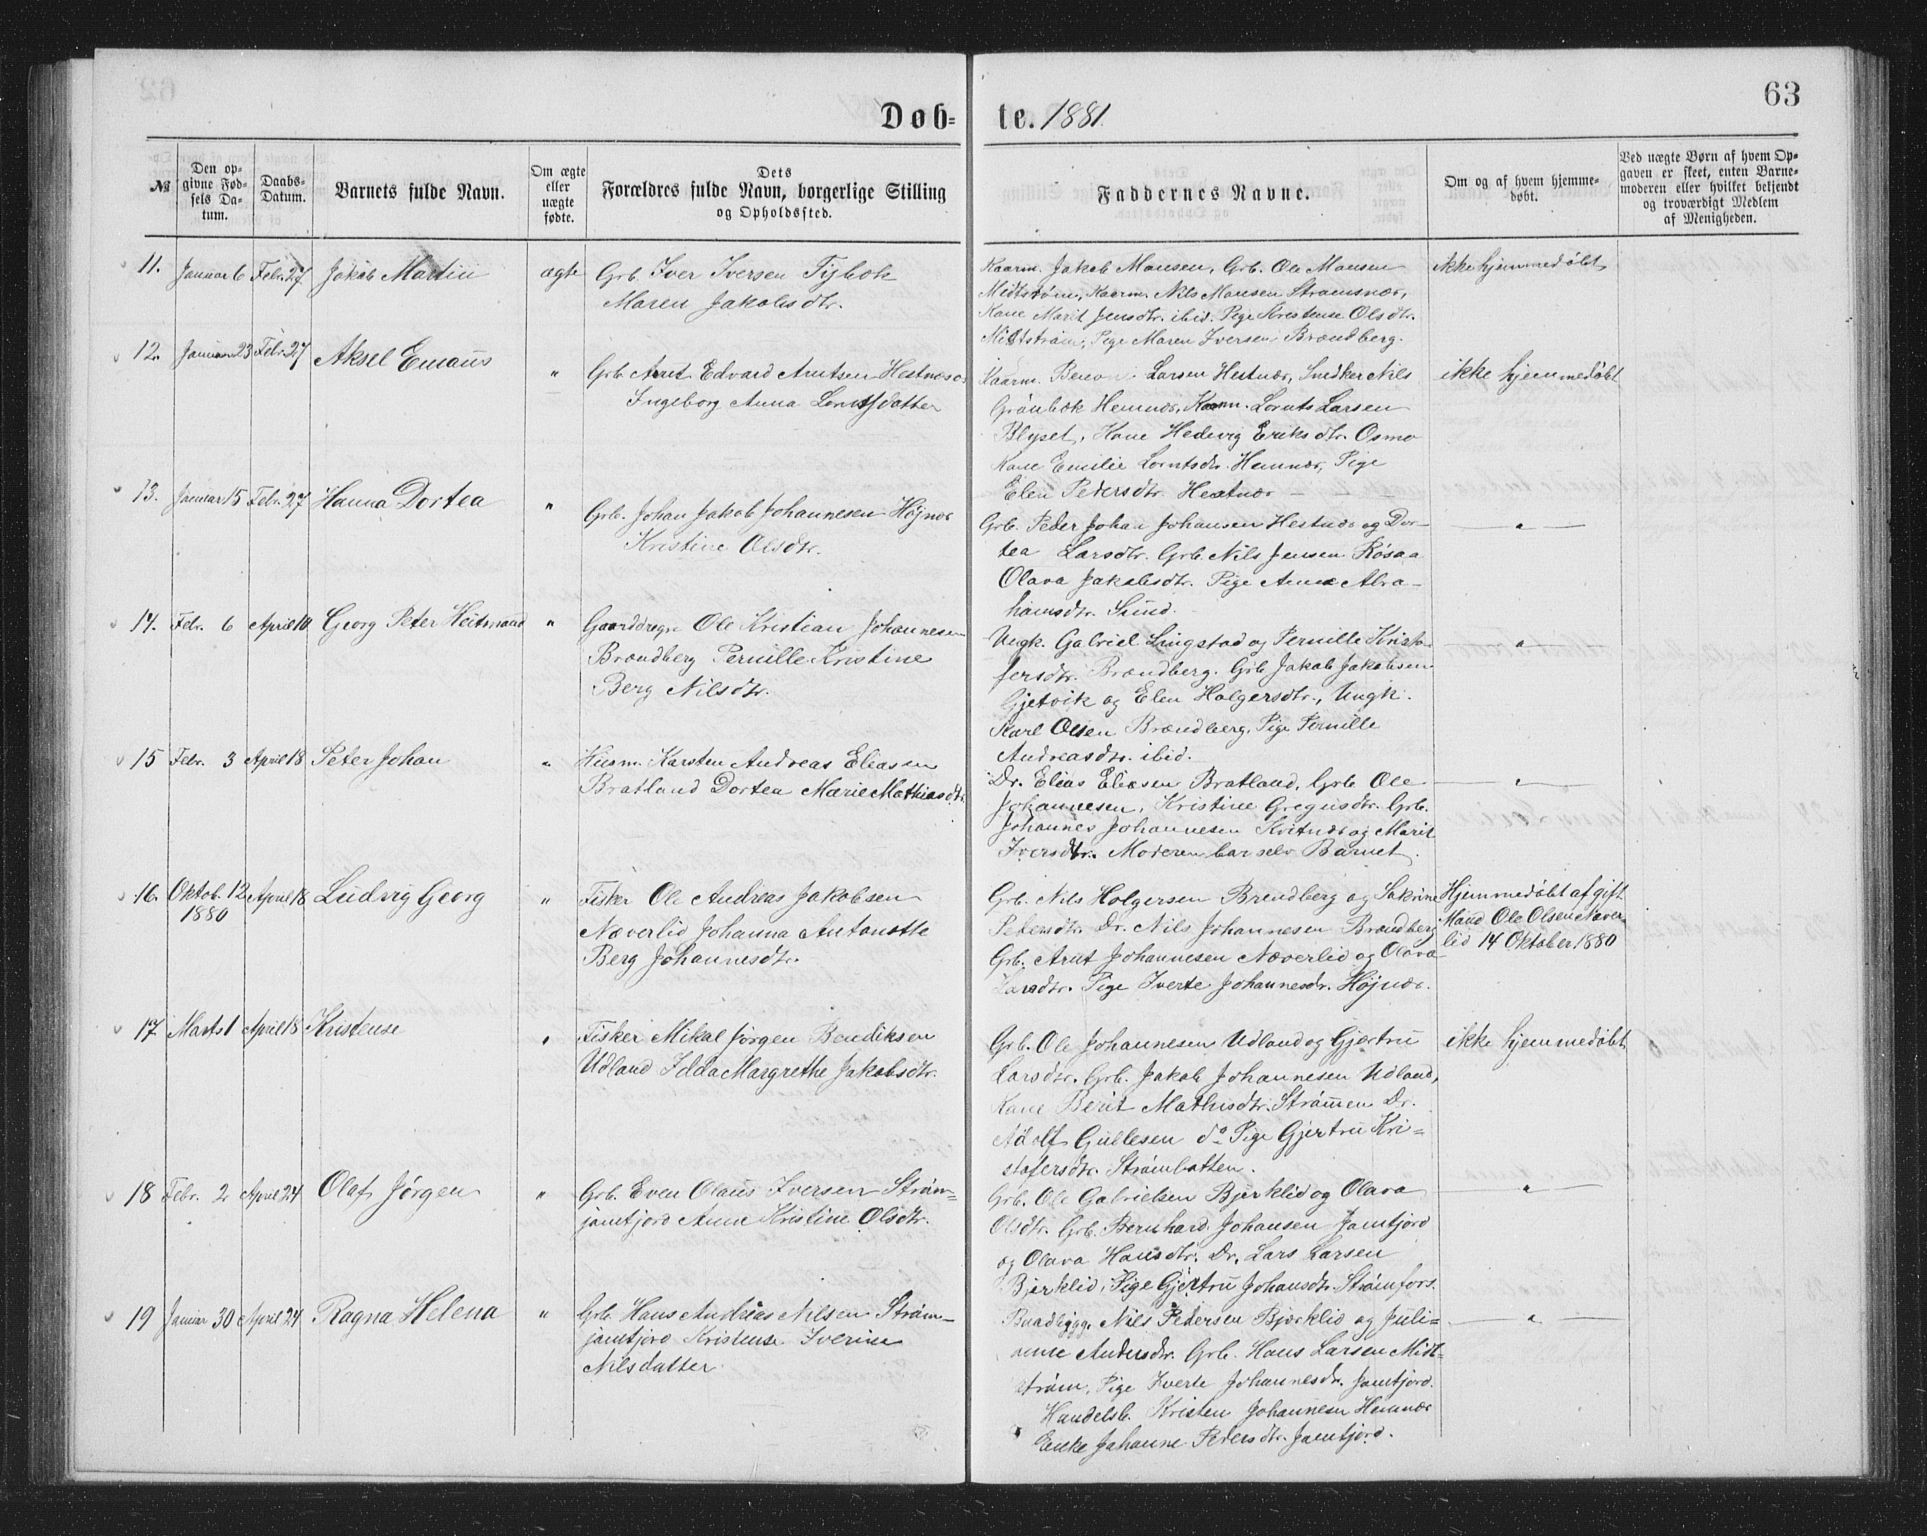 63
Döb=
te. 1881.
№
Den op-
givne Fød-
sels Da-
tum.
Daabs-
Datum.
Barnets fulde Navn.
Om ægte
eller
uægte
fødte.
Dets
Forældres fulde Navn, borgerlige Stilling
og Opholdssted.
Faddernes Navne.
Om og af hvem hjemme-
døbt.
Ved uægte Børn af hvem Op-
gaven er skeet, enten Barne-
moderen eller hvilket bekjendt
og troværdigt Medlem
af Menigheden.
11. Januar 6 Febr. 27 Jakob Martin ægte Grb. Iver Iversen Tybæk
Maren Jakobsdtr.
Kaarm. Jakob Monsen, Grb. Ole Monsen
Midtstrøm, Kaarm. Nils Monsen Strømsnæs,
Kone Marit Jensdtr. ibid. Pige Kristense Olsdtr.
Midtstrøm, Pige Maren Iversen Brændberg.
ikke hjemmedøbt
12. Januar 23 Febr. 27 Aksel Emaus " Grb. Arnt Edvard Arntsen Hestnæs o
Ingeborg Anna Lorntsdatter
Kaarm. Larsen Hestnæs, Snedker Nils
Grönbæk Hemnæs, Kaarm. Lornts Larsen
Blyset, Kone Hedevig Eriksdtr. Osmo
Kone Emilie Lorntsdtr. Hemnæs, Pige
Elen Pedersdtr. Hestnæs
ikke hjemmedøbt
13. Januar 15 Febr. 27 Hanna Dortea " Grb. Johan Jakob Johannesen Højnæs
Kristine Olsdtr.
Grb. Peder Johan Johansen Hestnæs og Dor-
tea Larsdtr. Grb. Nils Jensen Røsaa
Olava Jakobsdtr. Pige Anna Abra-
hamsdtr. Sund.
— " —
14. Febr. 6 April 10 Georg Peter Heitmand " Gaardbrgr Ole Kristian Johannesen
Brændberg Pernille Kristine
Berg Nilsdtr.
Ungk. Gabriel Lingstad og Pernille Kristo-
fersdtr. Brændberg. Grb. Jakob Jakobsen
Gjetvik og Elen Holgersdtr., Ungk.
Karl Olsen Brændberg, Pige Pernille
Andreasdtr. ibid.
— " —
15 Febr. 3 April 18 Peter Johan " Husm. Karsten Andreas Eliasen
Bratland Dortea Marie Mathiasdtr.
Dr. Elias Eliasen Bratland, Grb. Ole
Johannesen, Kristine Gregusdtr. Grb.
Johannes Johannesen Kvitnæs og Marit
Iversdtr. Moderen bar selv Barnet.
— " —
16. Oktob. 12 April 18 Ludvig Georg " Fisker Ole Andreas Jakobsen
1880
Næverlid Johanna Antonette
Berg Johannesdtr.
Grb. Nils Holgersen Brendberg og Sakrine
Petersdtr. Dr. Nils Johannesen Brændberg
Grb. Arnt Johannesen Næverlid og Olava
Larsdtr. Pige Iverte Johannesdtr. Højnæs.
Hjemmedøbt af gift
Mand Ole Olsen Næver
lid 14 Oktober 1880
17 Marts 1 April 18 Kristense " Fisker Mikal Jørgen Bendiksen
Udland Idda Margrethe Jakobsdtr.
Grb. Ole Johannesen Udland og Gjertru
Larsdtr. Grb. Jakob Johannesen Udland,
Kone Berit Mathisdtr. Strømmen Dr.
Adolf Gullesen do Pige Gjertru Kri=
stofersdtr. Strømbotten.
ikke hjemmedøbt
18 Febr. 2 April 24 Olaf Jørgen " Grb. Even Olaus Iversen Strøm-
jamtjord Anne Kristine Olsdtr.
Grb. Ole Gabrielsen Bjerklid og Olava
Olsdtr. Grb. Bernhard Johansen Jamtjord
og Olava Hansdtr. Dr. Lars Larsen
Bjerklid, Pige Gjertru Johansdtr. Strømfors.
— " —
19 Januar 30 April 24 Ragna Helena " Grb. Hans Andreas Nilsen Strøm-
jamtjord Kristense Iverine
Nilsdatter
Buadbygg. Nils Pedersen Bjerklid og Juli=
anne Andersdtr. Grb. Hans Larsen Midt-
strøm, Pige Iverte Johannesdtr. Jamtjord.
Handelsb. Kristen Johannesen Hemnæs
Enke Johanne Pedersdtr. Jamtjord.
— " —